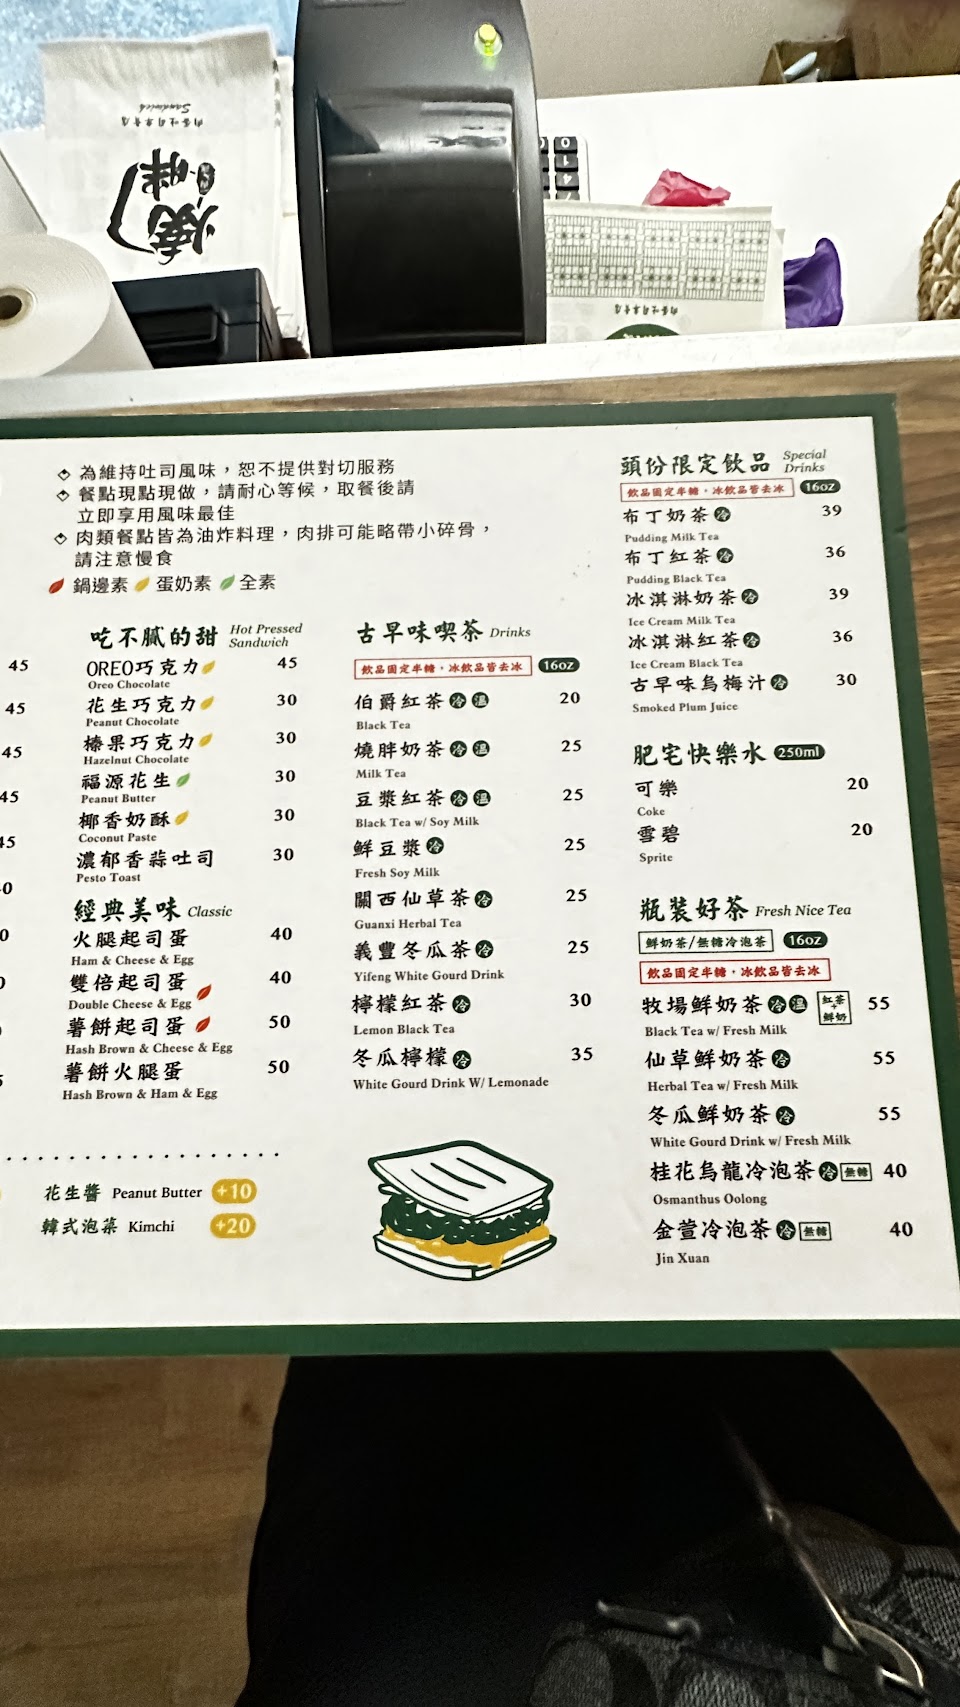 Sandwich
肉蛋吐司專賣店
燒胖
0
1
4
7
肉蛋吐司專賣店
為維持吐司風味，恕不提供對切服務
餐點現點現做，請耐心等候，取餐後請
立即享用風味最佳
肉類餐點皆為油炸料理，肉排可能略帶小碎骨，
請注意慢食
鍋邊素 蛋奶素 全素
45
45
45
45
吃不膩的甜 Hot Pressed Sandwich
OREO巧克力 45
Oreo Chocolate
花生巧克力 30
Peanut Chocolate
榛果巧克力 30
Hazelnut Chocolate
福源花生 30
Peanut Butter
椰香奶酥 30
Coconut Paste
濃郁香蒜吐司 30
Pesto Toast
經典美味 Classic
火腿起司蛋 40
Ham & Cheese & Egg
雙倍起司蛋 40
Double Cheese & Egg
薯餅起司蛋 50
Hash Brown & Cheese & Egg
薯餅火腿蛋 50
Hash Brown & Ham & Egg
花生醬 Peanut Butter +10
韓式泡菜 Kimchi +20
古早味喫茶 Drinks
飲品固定半糖，冰飲品皆去冰 16oz
伯爵紅茶 冷 溫 20
Black Tea
燒胖奶茶 冷 溫 25
Milk Tea
豆漿紅茶 冷 溫 25
Black Tea w/ Soy Milk
鮮豆漿 冷 25
Fresh Soy Milk
關西仙草茶 冷 25
Guanxi Herbal Tea
義豐冬瓜茶 冷 25
Yifeng White Gourd Drink
檸檬紅茶 冷 30
Lemon Black Tea
冬瓜檸檬 冷 35
White Gourd Drink W/ Lemonade
頭份限定飲品 Special Drinks
飲品固定半糖，冰飲品皆去冰 16oz
布丁奶茶 冷 39
Pudding Milk Tea
布丁紅茶 冷 36
Pudding Black Tea
冰淇淋奶茶 冷 39
Ice Cream Milk Tea
冰淇淋紅茶 冷 36
Ice Cream Black Tea
古早味烏梅汁 冷 30
Smoked Plum Juice
肥宅快樂水 250ml
可樂 20
Coke
雪碧 20
Sprite
瓶裝好茶 Fresh Nice Tea
鮮奶茶/無糖冷泡茶 16oz
飲品固定半糖，冰飲品皆去冰
牧場鮮奶茶 冷 溫 紅茶+鮮奶 55
Black Tea w/ Fresh Milk
仙草鮮奶茶 冷 55
Herbal Tea w/ Fresh Milk
冬瓜鮮奶茶 冷 55
White Gourd Drink w/ Fresh Milk
桂花烏龍冷泡茶 冷 無糖 40
Osmanthus Oolong
金萱冷泡茶 冷 無糖 40
Jin Xuan